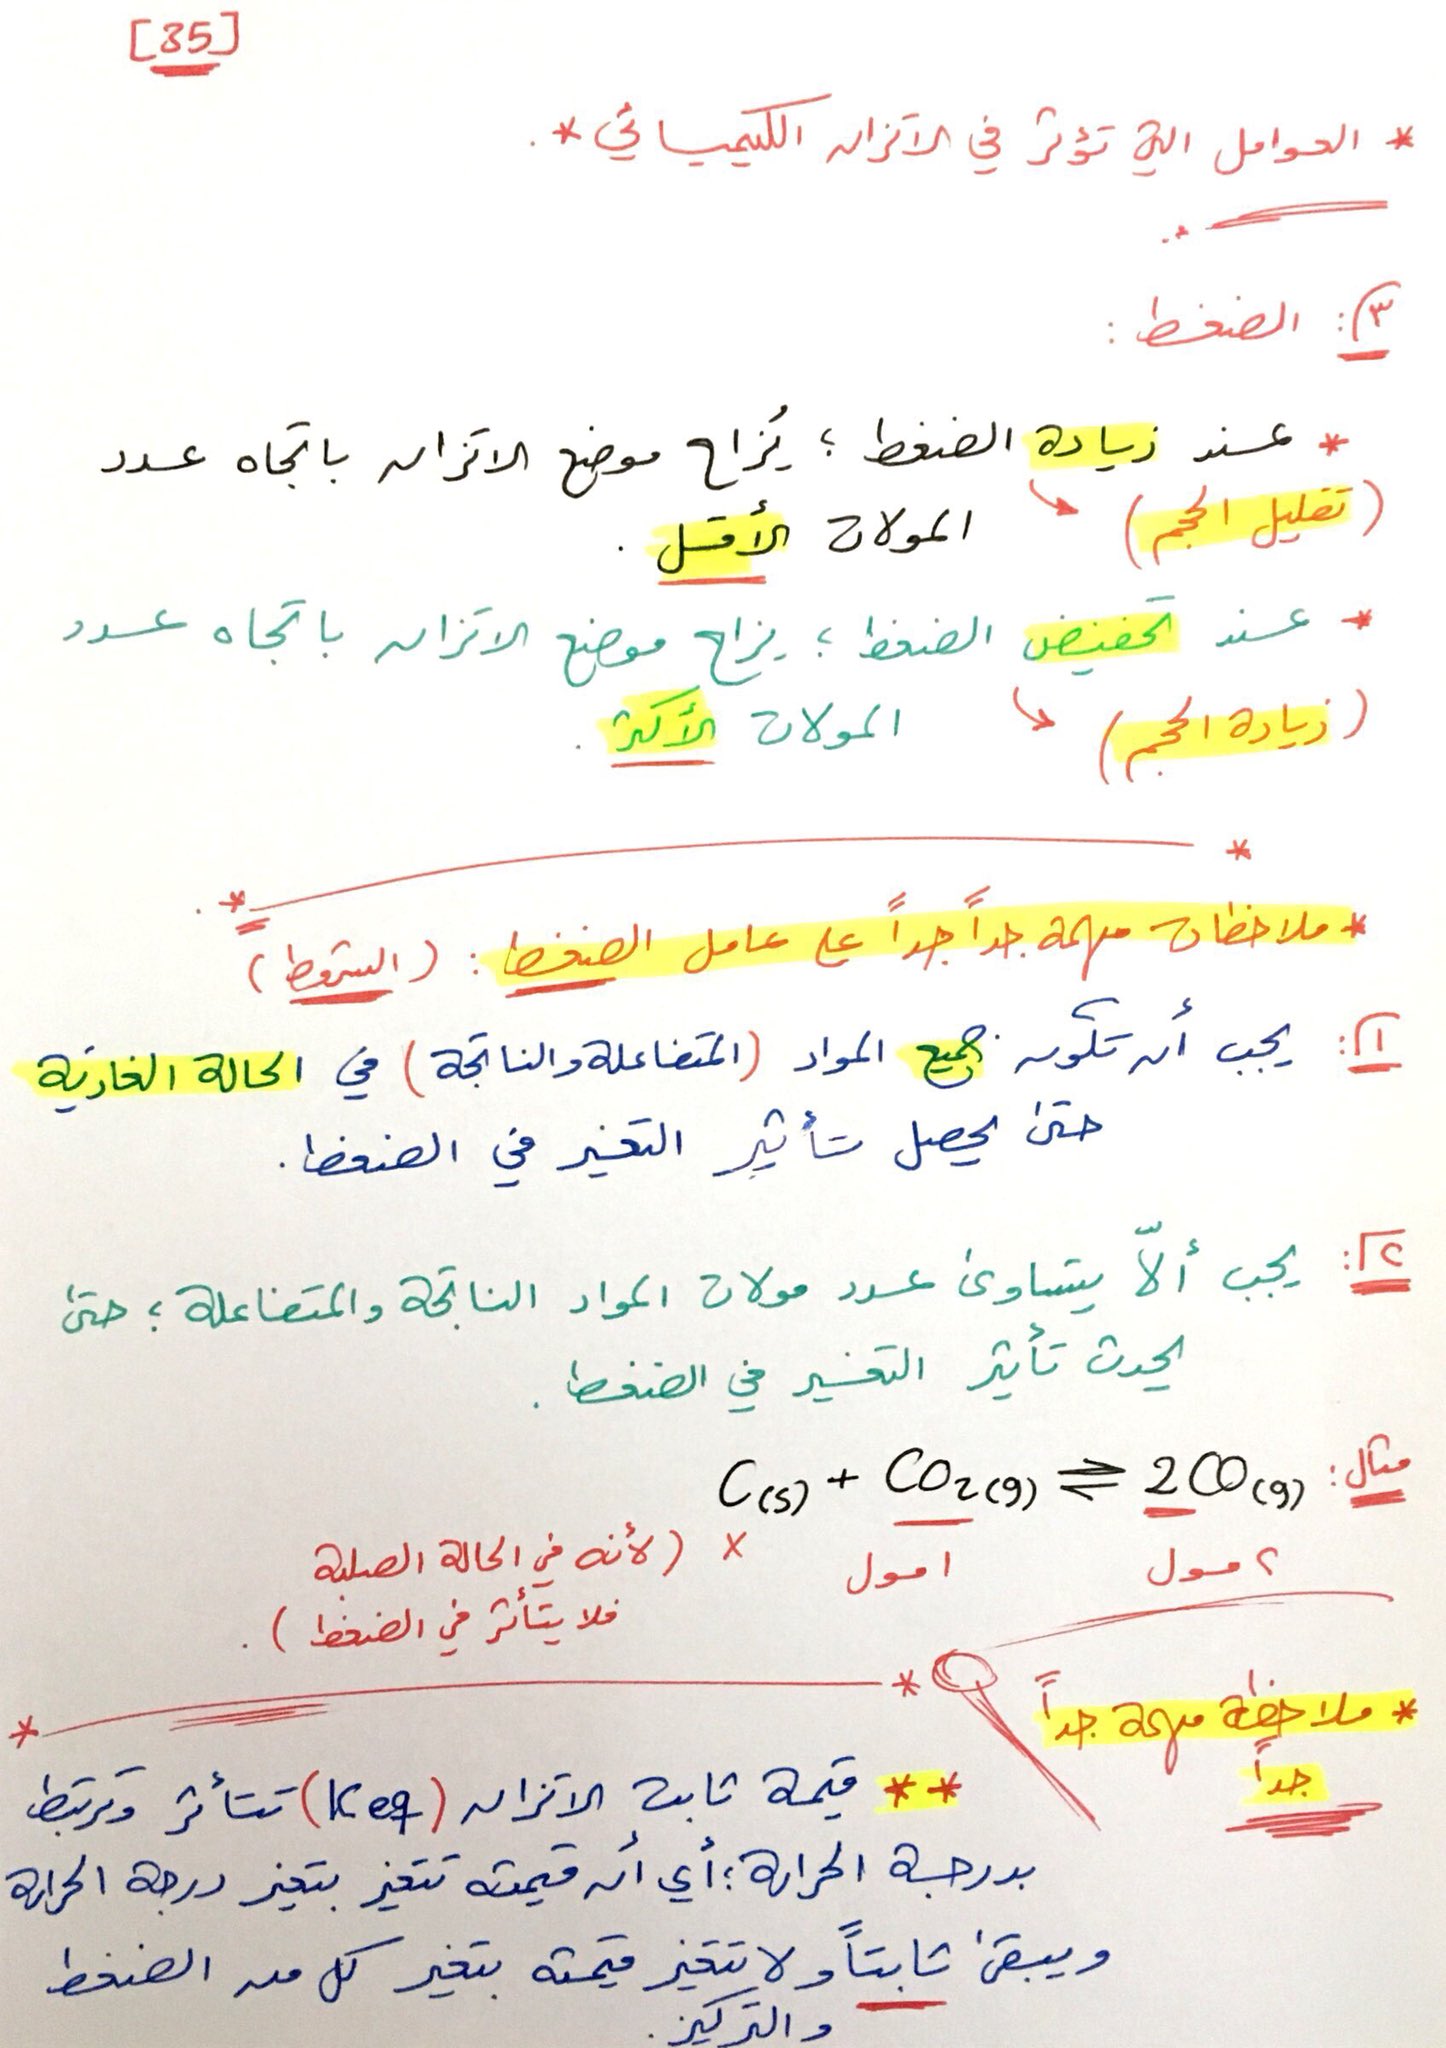 [35]
* العوامل التي تؤثر في الاتزان الكيميائي *.
٣: الضغط:
* عند زيادة الضغط؛ يُزاح موضع الاتزان باتجاه عدد
(تقليل الحجم) المولات الأقل.
* عند تخفيض الضغط؛ يزاح موضع الاتزان باتجاه عدد
(زيادة الحجم) المولات الأكثر.
* ملاحظات مهمة جداً جداً على عامل الضغط: (الشروط)
١: يجب أن تكون جميع المواد (المتفاعلة والناتجة) في الحالة الغازية
حتى يحصل تأثير التغير في الضغط.
٢: يجب ألاّ يتساوى عدد مولات المواد الناتجة والمتفاعلة؛ حتى
يحدث تأثير التغير في الضغط.
مثال: C(s) + CO2(g) ⇌ 2CO(g)
٢ مول ١ مول X (لأنه في الحالة الصلبة
فلا يتأثر في الضغط).
* ملاحظة مهمة جداً
جداً
** قيمة ثابت الاتزان (Keq) تتأثر وترتبط
بدرجة الحرارة؛ أي أن قيمته تتغير بتغير درجة الحرارة
ويبقى ثابتاً ولا تتغير قيمته بتغير كل من الضغط
والتركيز.